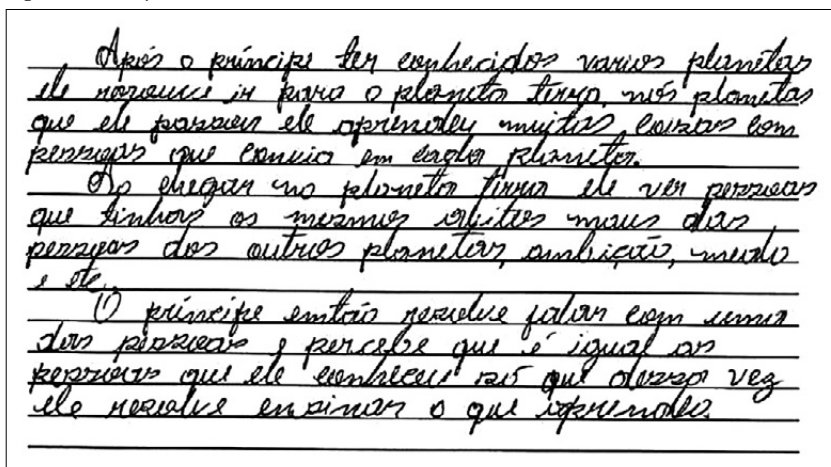 Após o príncipe ter conhecidos varios planetas
ele resouve ir para o planeta terra, nós planetas
que ele passou ele aprendeu muitas coisas com
pessoas que convia em cada planeta.
Ao chegar no planeta terra ele ver pessoas
que tinhas os mesmos abitos maus das
pessoas dos outros planetas, ambição, medo
e etc.
O príncipe então resolve falar com uma
das pessoas e percebe que é igual as
pessoas que ele conheceu só que dessa vez
ele resolve ensinar o que aprendeu.